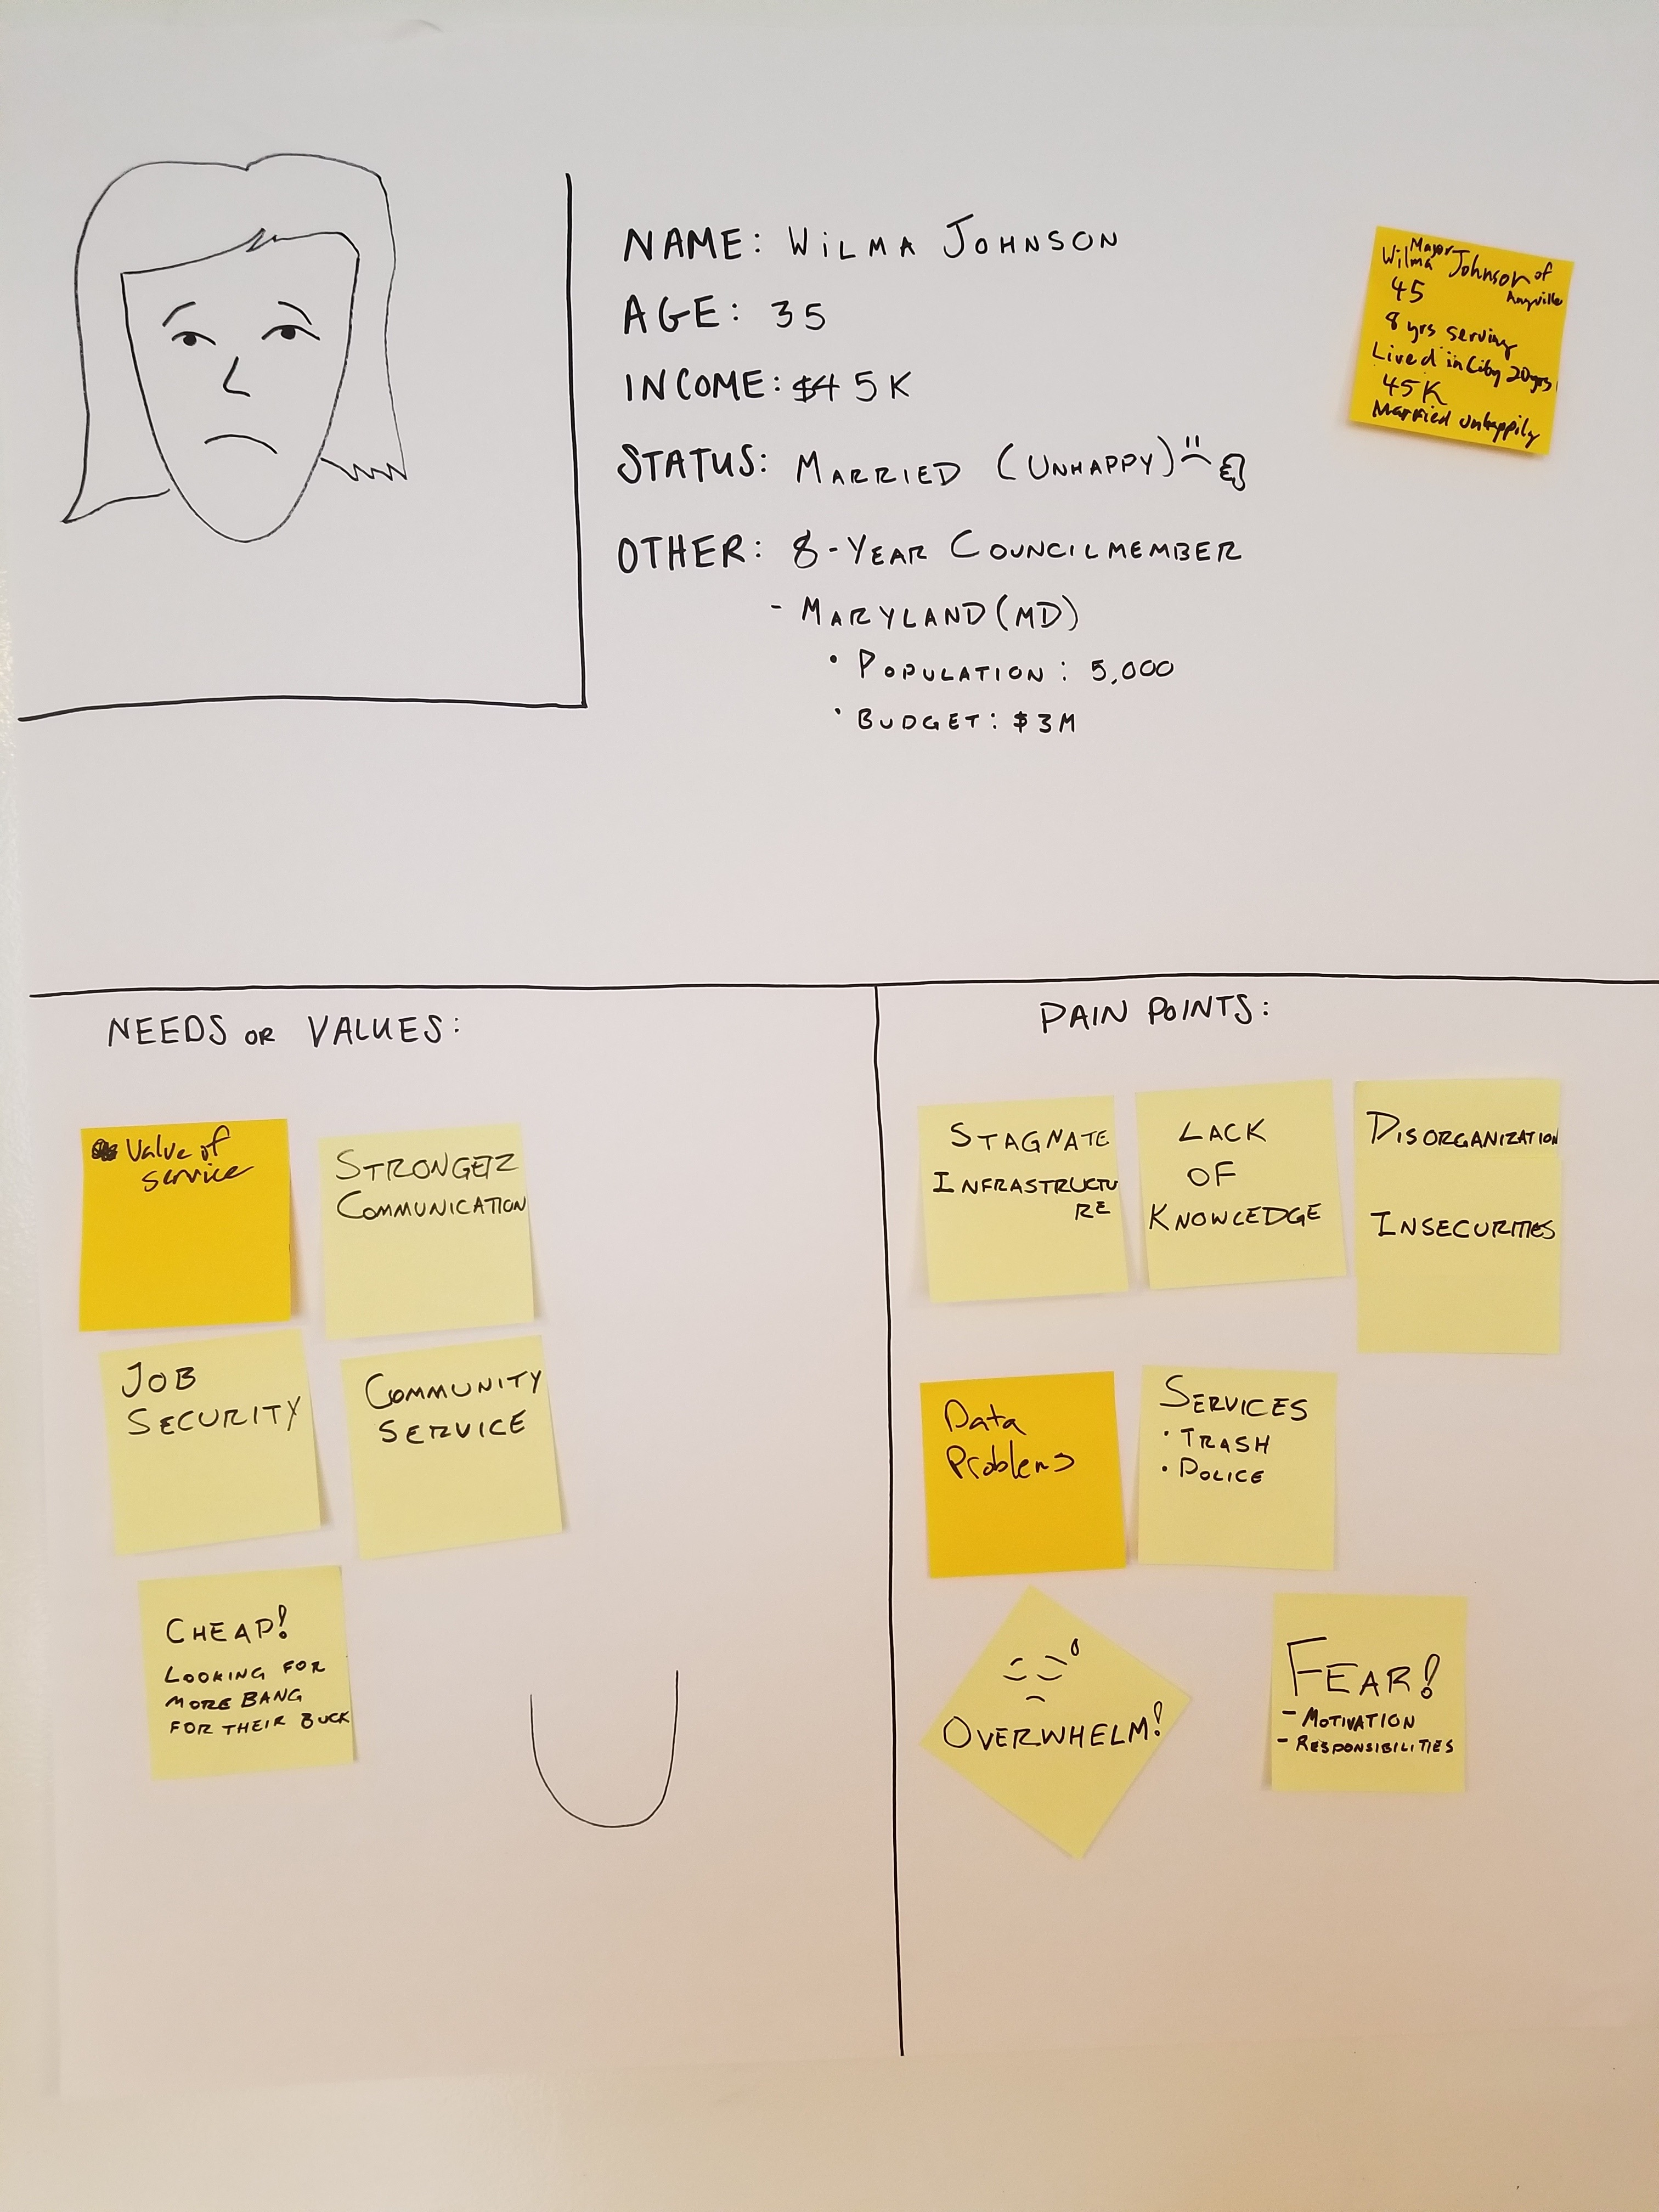 NAME: WILMA JOHNSON
AGE: 35
INCOME: $45K
STATUS: MARRIED (UNHAPPY)
OTHER: 8-YEAR COUNCILMEMBER
- MARYLAND (MD)
• POPULATION: 5,000
• BUDGET: $3M
Mayor
Wilma Johnson of
45 Anyville
8 yrs serving
Lived in City 20yrs
45K
Married unhappily
NEEDS OR VALUES:
Value of
service
STRONGER
COMMUNICATION
JOB
SECURITY
COMMUNITY
SERVICE
CHEAP!
LOOKING FOR
MORE BANG
FOR THEIR BUCK
PAIN POINTS:
STAGNATE
INFRASTRUCTU
RE
LACK
OF
KNOWLEDGE
DISORGANIZATION
INSECURITIES
Data
Problems
SERVICES
• TRASH
• POLICE
OVERWHELM!
FEAR!
- MOTIVATION
- RESPONSIBILITIES